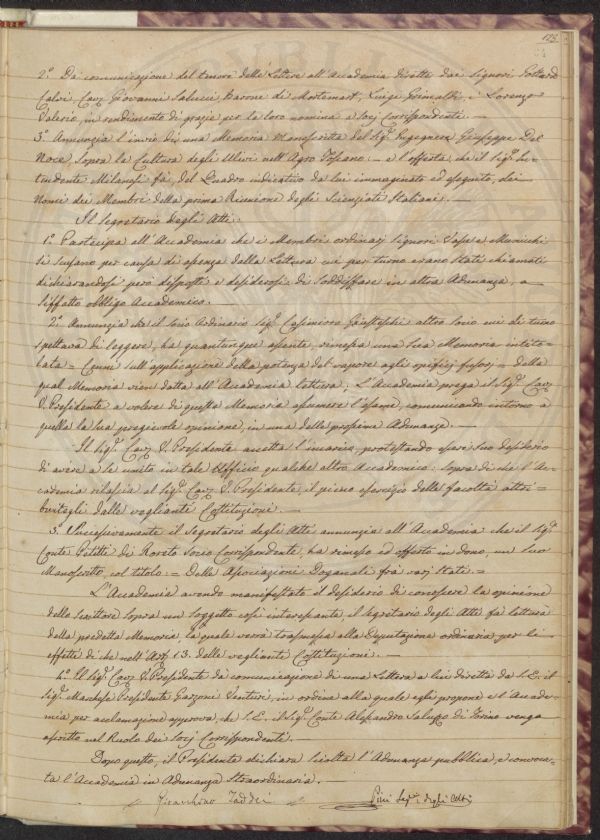 173.
2.° Dà comunicazione del tenore delle Lettere all'Accademia dirette dai Signori Gottard
Calvi Cav.e Giovanni Salucci, Barone di Mortemart, Luigi Grimaldi, e Lorenzo
Valerio, in rendimento di grazie per la loro nomina a Socj Corrispondenti. —
3.° Annunzia l'invio di una Memoria manoscritta del Sig.r Ingegnere Giuseppe Del
Noce, sopra la Cultura degli Ulivi nell'Agro Toscano — e l'offerta, che il Sig.r In-
tendente Milanesi fà del Quadro indicativo da lui immaginato ed eseguito, dei
Nomi dei Membri della prima Riunione degli Scienziati Italiani. —
Il Segretario degli Atti:
1.° Partecipa all'Accademia che i Membri ordinarj Signori e
si scusano per causa di assenza dalla Lettura cui per turno erano stati chiamati
dichiarandosi però disposti e desiderosi di soddisfare in altra Adunanza, a
siffatto obbligo Accademico. —
2.° Annunzia che il Socio Ordinario Sig.r Casimirro altro Socio cui di turno
spettava di leggere, ha quantunque assente, rimessa una sua Memoria intito-
lata = Cenni sull'applicazione della potenza del vapore agli opificj fusorj = della
qual Memoria vien datta all'Accademia lettura; L'Accademia prega il Sig.r Cav.e
V. Presidente a volere di questa Memoria assumere l'esame, comunicando intorno a
quella la sua pregievole opinione, in una delle prossime Adunanze. —
Il Sig.r Cav.e V. Presidente accetta l'incarico, protestando essere suo desiderio
di avere a se unito in tale Ufficio qualche altro Accademico: sopra di che l'Ac-
cademia rilascia al Sig.r Cav.e V. Presidente il pieno esercizio delle facoltà attri-
buitegli dalle veglianti Costituzioni. —
3.° Successivamente il Segretario degli Atti annunzia all'Accademia che il Sig.r
Conte Petitti di Roreto Socio Corrispondente, ha rimesso ed offerto in dono, un suo
Manoscritto, col titolo = Delle Associazioni Doganali fra varj Stati. =
L'Accademia avendo manifestato il desiderio di conoscere la opinione
dello scrittore sopra un soggetto così interessante, il Segretario degli Atti fà lettura
della predetta Memoria, la quale verrà trasmessa alla Deputazione ordinaria per li
effetti di che nell'Art.° 13. delle veglianti Costituzioni. —
4.° Il Sig.r Cav.e V. Presidente dà comunicazione di una Lettera a lui diretta da S. E. il
Sig.r Marchese Presidente Garzoni Venturi, in ordine alla quale egli propone e l'Accade-
mia per acclamazione approva, che S. E. il Sig.r Conte Alessandro Saluzzo di Torino venga
ascritto nel Ruolo dei Socj Corrispondenti. —
Dopo questo, il Presidente dichiara sciolta l'Adunanza pubblica, e convoca-
ta l'Accademia in Adunanza Straordinaria. —
Gioacchino Taddei
Pini Seg.° degli Atti